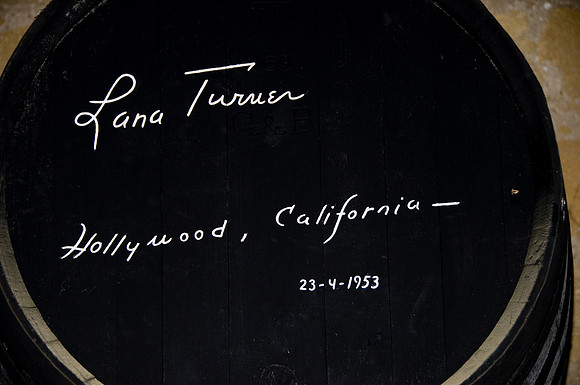 Lana Turner
Hollywood, California —
23-4-1953